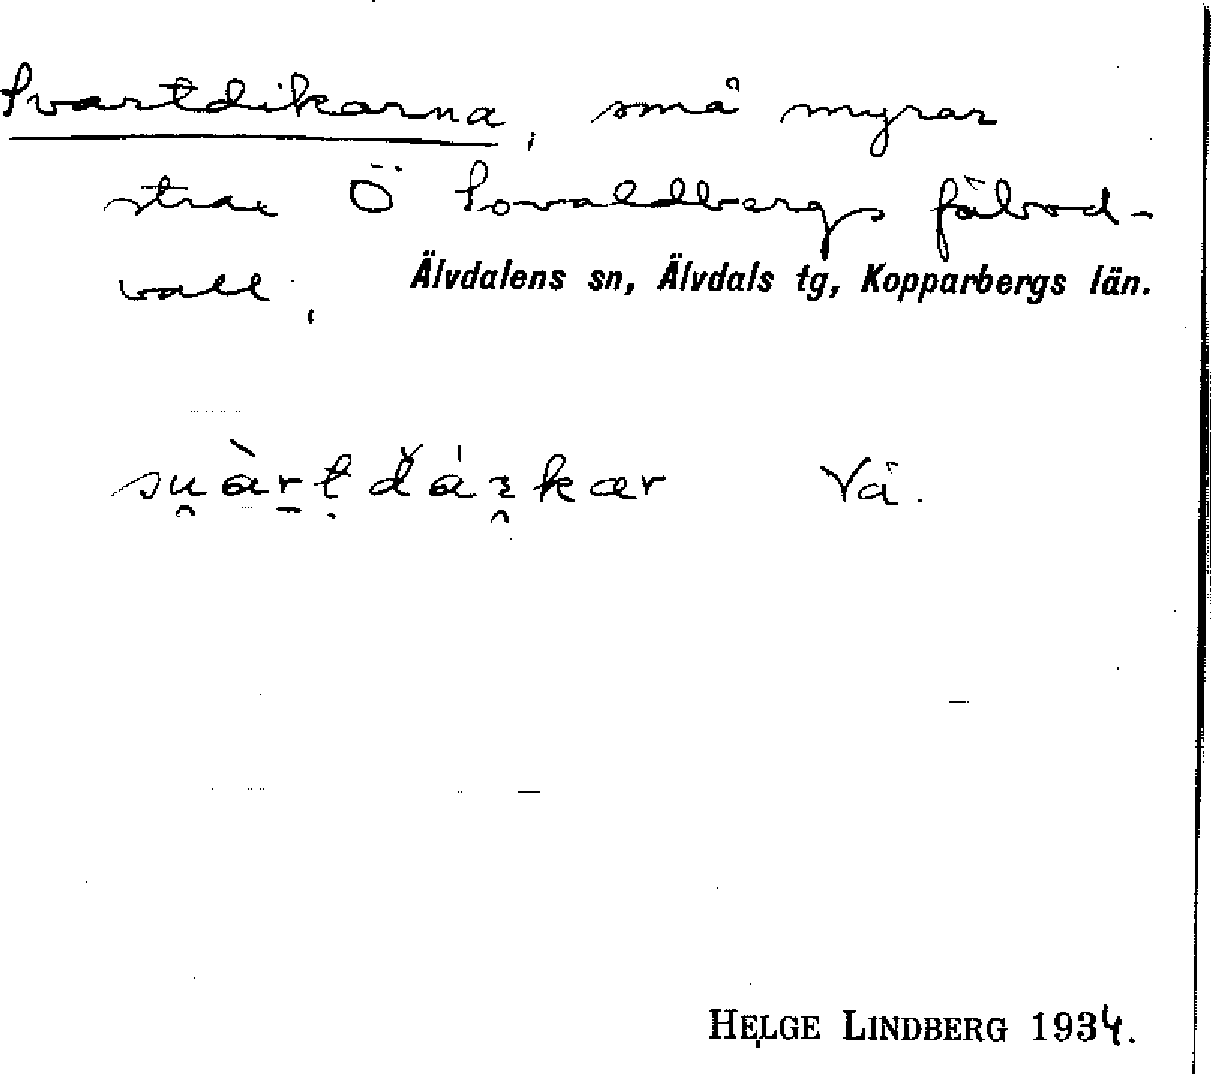 Svartdikarna, små myrar
strax Ö Sovaldbergs fäbod-
vall, Älvdalens sn, Älvdals tg, Kopparbergs län.
Vä.
HELGE LINDBERG 1934.